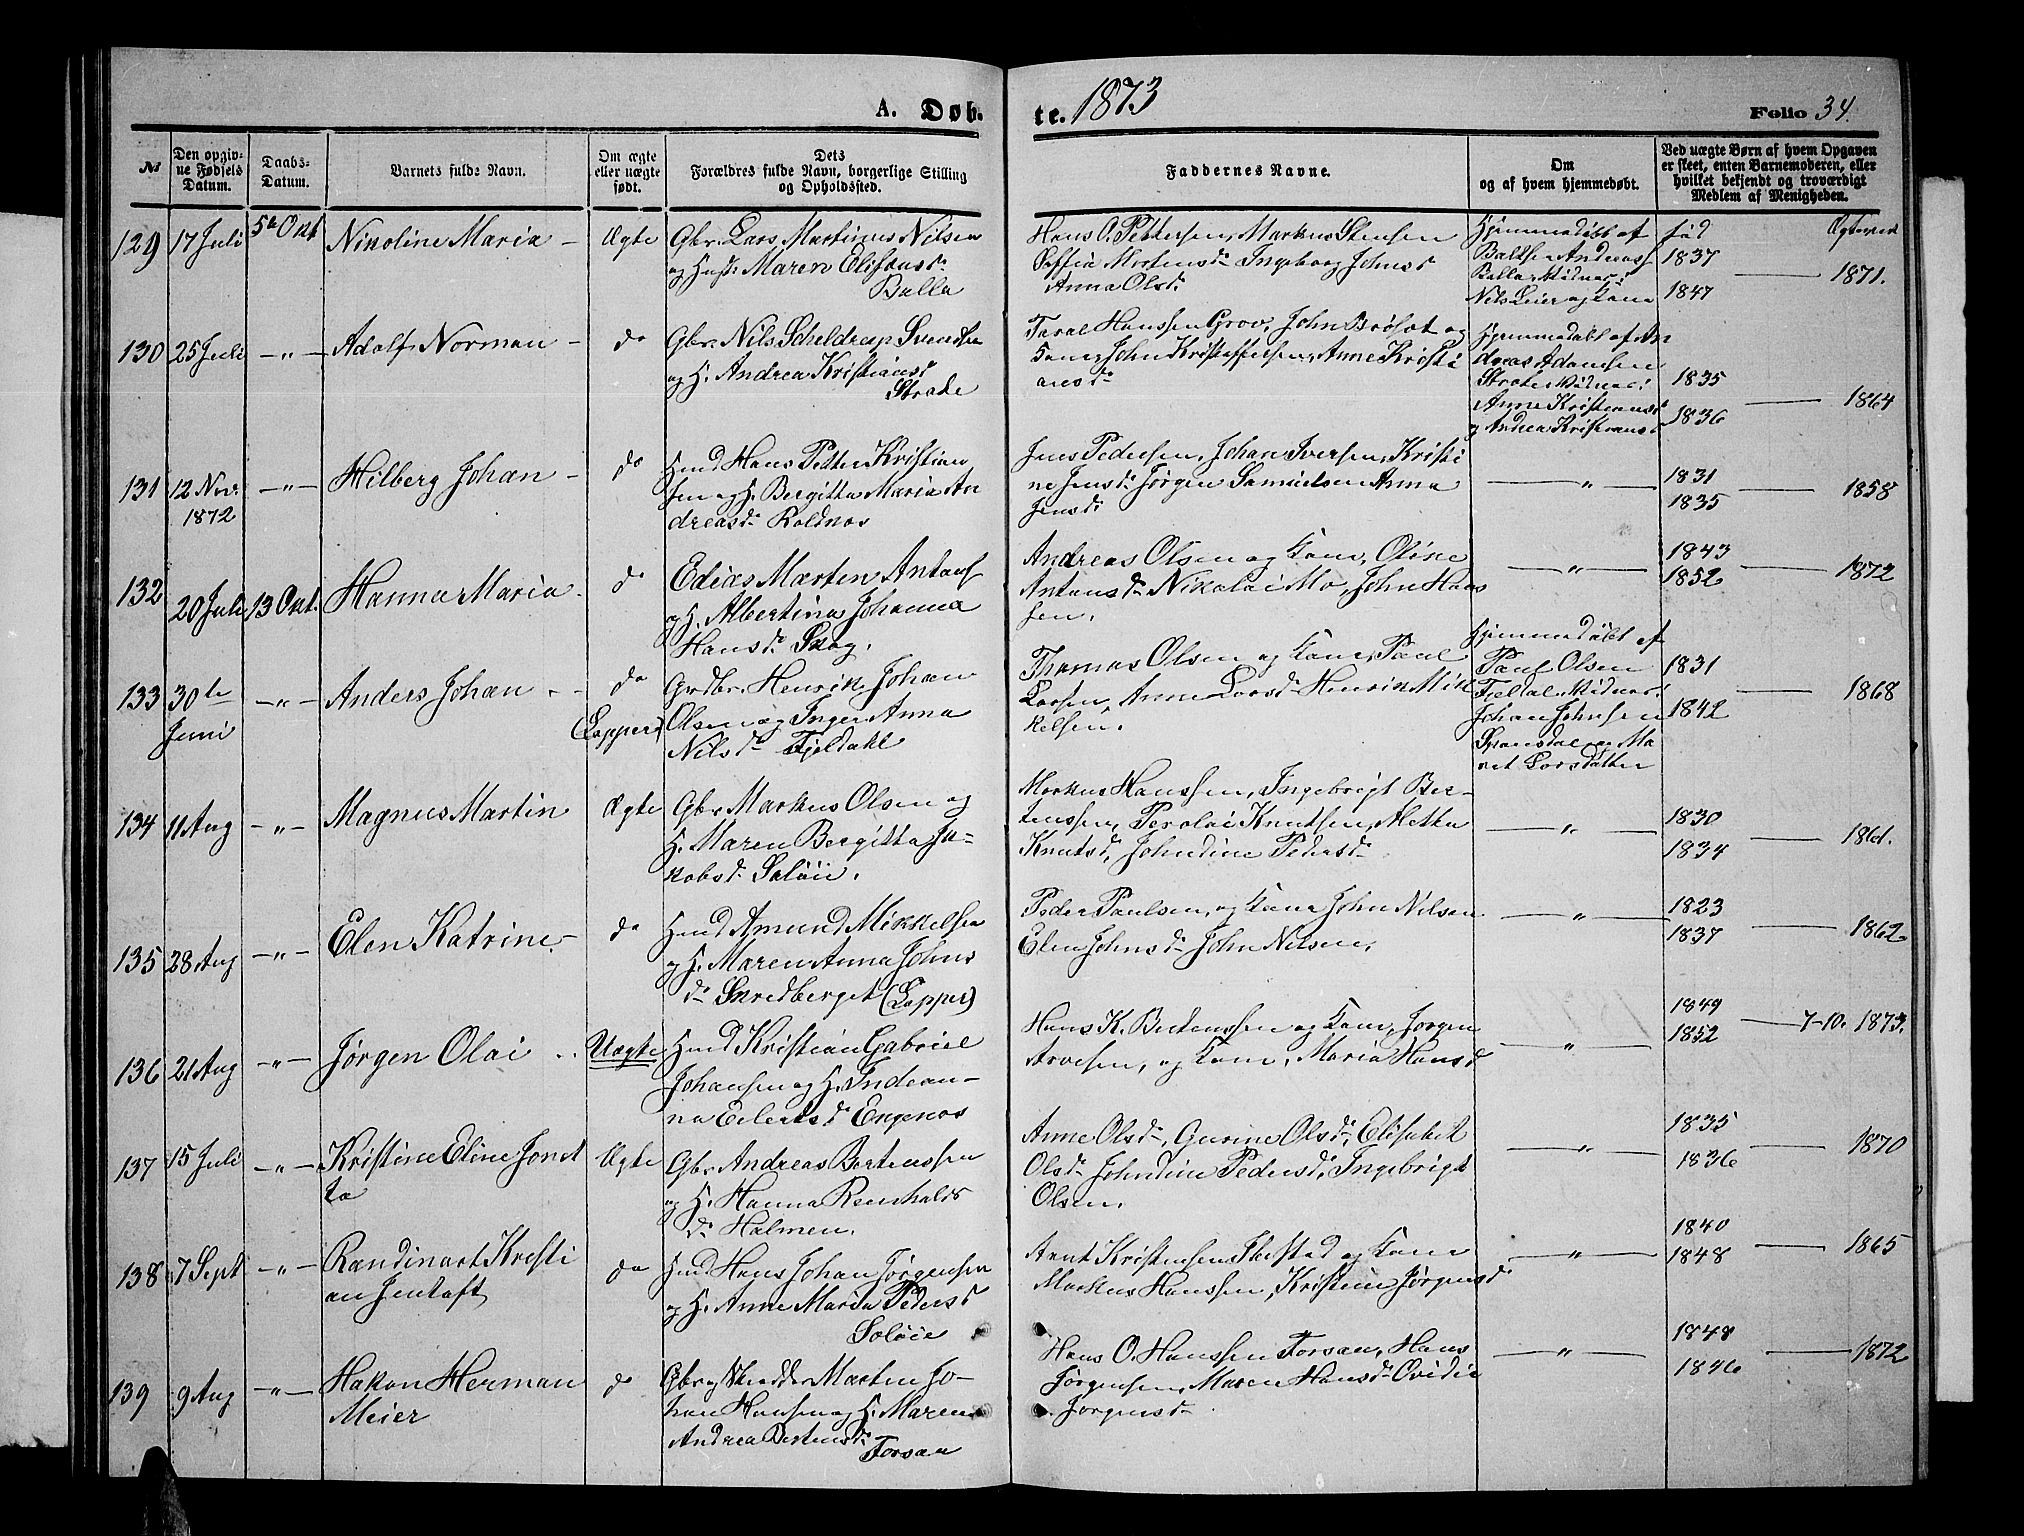 A. Døb-
te. 1873
Folio 34.
№
Den opgiv-
ne Fødsels
Datum.
Daabs-
Datum.
Barnets fulde Navn.
Om ægte
eller uægte
født.
Dets
Forældres fulde Navn, borgerlige Stilling
og Opholdssted.
Faddernes Navne.
Om
og af hvem hjemmedøbt.
Ved uægte Børn af hvem Opgaven
er skeet, enten Barnemoderen, eller
hvilket bekjendt og troværdigt
Medlem af Menigheden.
129 17 Juli 5te Okt Nikoline Maria - Ægte
Gbr. Lars Martinus Nilsen
og Hust. Maren Elisæusd.
Balla
Hans O. Pettersen, Markus Stensen
Mortensd. Ingeborg Johnsd
Anna Olsd.
Hjemmedøbt af
Andreas
Balla
Nils Leier og Kone
fød
1837
1847
1871.
130 25 Juli -„- Adolf Norman - do
Gbr. Nils Scheldrup Svendsen
og H. Andrea Kristiansd
Strade
Hanssen Grov, John Brøset og
Kone, John Kristoffersen, Anne Kristi
ansd.
Hjemmedøbt af An
dreas Adamsen
Anne Kristiansd
og Andrea Kristiansd
1835
1836
1864
131 12 Nov. 1872 -„- Hilberg Johan - do
Hmd Hans Petter Kristian
sen og H. Bergitta Maria An
dreasd. Roldnes
Jens Pedersen, Johan Iversen, Kristi
ne Jensd. Jørgen Samuelsen Anna
Jensd.
-„-
1831
1835
1858
132 20 Juli 13 Okt. Hanna Maria - do
Edias Marten Antons
og H. Albertina Johanna
Hansd. Skog.
Andreas Olsen og Kone, Oline
Antonsd. Nikolai Mo, John Hans
sen.
-„-
1843
1852
1872
133 30te Juni -„- Anders Johan - do
(Lapper)
Grdbr. Henrik Johan
Olsen og Inger Anna
Nilsd. Fjeldahl
Thomas Olsen og Kone, Paul
Larsen, Anne Larsd. Henrik Mik
kelsen.
Hjemmedøbt af
Paul Olsen
Johan Johnsen
Spansdal og Ma
ret Larsdatter
1831
1842
1868
134 11 Aug -„- Magnus Martin Ægte
Gbr. Markus Olsen og
H. Maren Bergitta Ja-
kobsd. Saløie.
Markus Hanssen, Ingebrigt Ber-
tenssen, Perolai Knutsen, Metha
Knutsd, Johndine Pedersd.
-„-
1830
1834
1861.
135 28 Aug -„- Elen Katrine - do
Hmd Amund Mikkelsen
og H. Maren Anna Johns
d. Snredberget (Lapper)
Peder Paulsen, og Kone John Nilsen
Elen Johnsd. John Nilsen.
-„-
1823
1837
1862
136 21 Aug -„- Jørgen Olai Uægte
Hmd Kristian Gabriel
Johansen og H. Indian-
na Eilertsd. Engenes
Hans K. Bertenssen og Kone, Jørgen
Arvesen, og Kone, Maria Hansd
-„-
1849
1852
7-10. 1873.
137 15 Juli -„- Kristine Eline Jonet
ta Ægte
Gbr. Andreas Bertenssen
og H. Hanna Reinholds
d. Halmen.
Anne Olsd. Gurine Olsd. Elisabet
Olsd. Johndine Pedersd. Ingebrigt
Olsen.
-„-
1835
1836
1870
138 7 Sept -„- Randinart Kristi
an Jentoft do
Hmd Hans Johan Jørgensen
og H. Anne Maria Pedersd
Saløie
Arnt Kristensen Ibestad og Kone
Markus Hanssen, Kristine Jørgensd.
-„-
1840
1848
1865
139 9 Aug -„- Hakon Herman
Meier do
Gbr og Skrædder Marten Jo-
han Hansen og H. Maren
Andrea Bertensd.
Forsaa
Hans O. Hanssen Forsaa, Hans
Jørgensen, Maren Hansd. Ovidie
Jørgensd.
-„-
1848
1846
1872